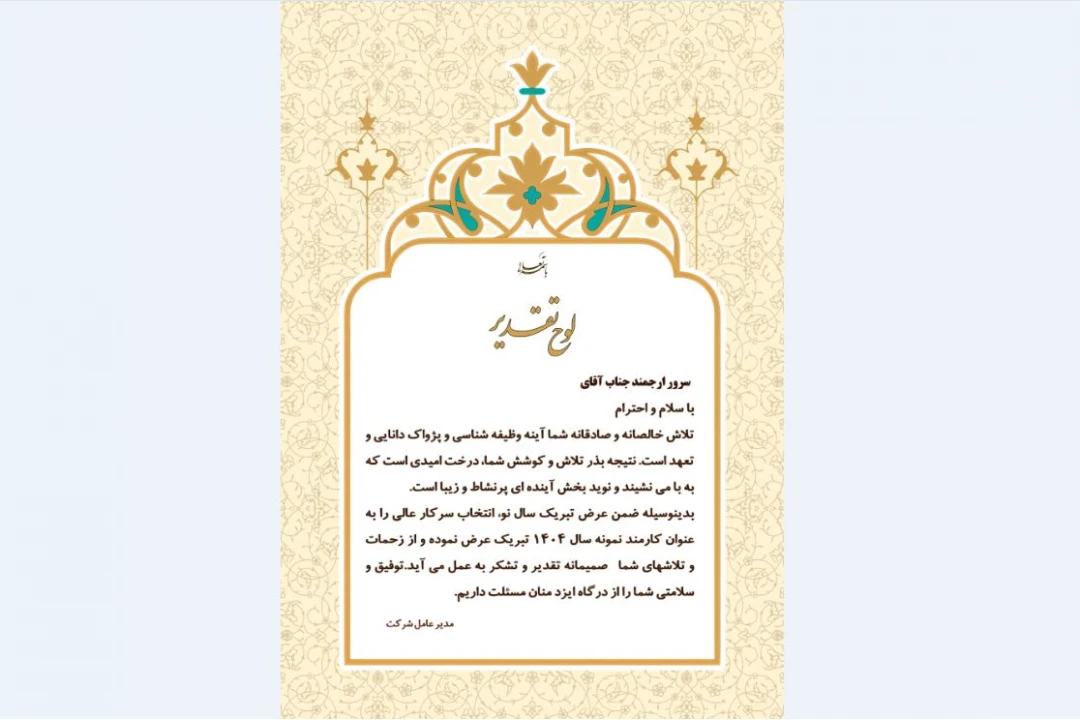 باسمه تعالی
لوح تقدیر
سرور ارجمند جناب آقای
با سلام و احترام
تلاش خالصانه و صادقانه شما آینه وظیفه شناسی و پژواک دانایی و
تعهد است. نتیجه بذر تلاش و کوشش شما، درخت امیدی است که
به با می نشیند و نوید بخش آینده ای پرنشاط و زیبا است.
بدینوسیله ضمن عرض تبریک سال نو، انتخاب سرکار عالی را به
عنوان کارمند نمونه سال ۱۴۰۴ تبریک عرض نموده و از زحمات
و تلاشهای شما صمیمانه تقدیر و تشکر به عمل می آید.توفیق و
سلامتی شما را از درگاه ایزد منان مسئلت داریم.
مدیر عامل شرکت